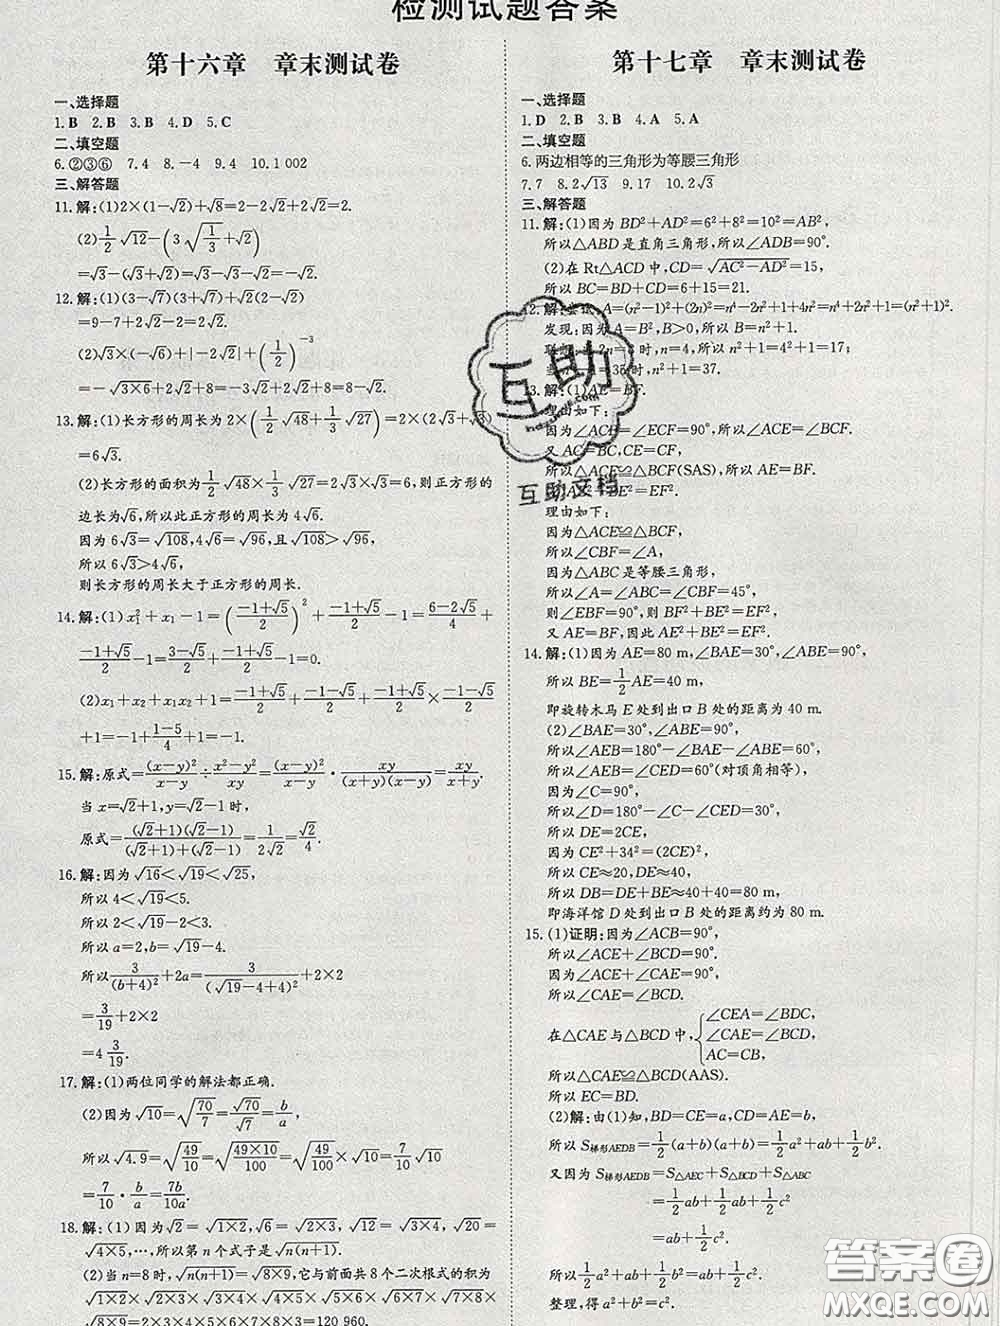 检测试题答案
第十六章 章末测试卷
一、选择题
1.B 2.B 3.B 4.D 5.C
二、填空题
6.②③⑥ 7.4 8.-4 9.4 10.1 002
三、解答题
11.解:(1)2×(1-√2)+√8=2-2√2+2√2=2.
(2)1/2 √12-(3√(1/3)+√2)
=√3-(√3+√2)=√3-√3-√2=-√2.
12.解:(1)(3-√7)(3+√7)+√2(2-√2)
=9-7+2√2-2=2√2.
(2)√3×(-√6)+|-2√2|+(1/2)^-3
=-√(3×6)+2√2+8=-3√2+2√2+8=8-√2.
13.解:(1)长方形的周长为2×(1/2 √48+1/3 √27)=2×(2√3+√3)
=6√3.
(2)长方形的面积为1/2 √48×1/3 √27=2√3×√3=6,则正方形的
边长为√6,所以此正方形的周长为4√6.
因为6√3=√108,4√6=√96,且√108>√96,
所以6√3>4√6,
则长方形的周长大于正方形的周长.
14.解:(1)x₁²+x₁-1=((-1+√5)/2)²+(-1+√5)/2-1=(6-2√5)/4+
(-1+√5)/2-1=(3-√5)/2+(-1+√5)/2-1=0.
(2)x₁+x₂+x₁x₂+1=(-1+√5)/2+(-1-√5)/2+(-1+√5)/2×(-1-√5)/2
+1=-1+(1-5)/4+1=-1.
15.解:原式=(x-y)²/(x-y)÷(x²-y²)/xy=(x-y)²/(x-y)·xy/((x+y)(x-y))=xy/(x+y).
当x=√2+1,y=√2-1时,
原式=(√2+1)(√2-1)/(√2+1+√2-1)=1/(2√2)=√2/4
16.解:因为√16<√19<√25,
所以4<√19<5.
所以2<√19-2<3.
所以a=2,b=√19-4.
所以3/(b+4)²+2a=3/(√19-4+4)²+2×2
=3/19+2×2
=4 3/19.
17.解:(1)两位同学的解法都正确.
(2)因为√10=√(70/7)=√70/√7=b/a,
所以√4.9=√(49/10)=√(49×10/100)=√(49/100)×√10=7/10 √10
=7/10·b/a=7b/10a.
18.解:(1)因为√2=√(1×2),√6=√(2×3),√12=√(3×4),√20=
√(4×5),…,所以第n个式子是√(n(n+1)).
(2)当n=8时,√(n(n+1))=√(8×9),它与前面共8个二次根式的积为
√(1×2)×√(2×3)×√(3×4)×√(4×5)×√(5×6)×√(6×7)×√(7×8)×
√(8×9)=1×2×3×4×5×6×7×8×3=120 960.
第十七章 章末测试卷
一、选择题
1.D 2.B 3.B 4.A 5.A
二、填空题
6.两边相等的三角形为等腰三角形
7.7 8.2√13 9.17 10.2√3
三、解答题
11.解:(1)因为BD²+AD²=6²+8²=10²=AB²,
所以△ABD是直角三角形,所以∠ADB=90°.
(2)在Rt△ACD中,CD=√(AC²-AD²)=15,
所以BC=BD+CD=6+15=21.
12.解:尝试:A=(n²-1)²+(2n)²=n⁴-2n²+1+4n²=n⁴+2n²+1=(n²+1)².
发现:因为A=B²,B>0,所以B=n²+1.
2n=8时,n=4,所以n²+1=4²+1=17;
35时,n²+1=37.
13.解:(1)AE=BF.
理由如下:
因为∠ACB=∠ECF=90°,所以∠ACE=∠BCF.
又AC=BC,CE=CF,
所以△ACE≌△BCF(SAS),所以AE=BF.
BE²=EF².
理由如下:
因为△ACE≌△BCF,
所以∠CBF=∠A,
因为△ABC是等腰三角形,
所以∠A=∠ABC=∠CBF=45°,
则∠EBF=90°,则BF²+BE²=EF²,
又AE=BF,因此AE²+BE²=EF².
14.解:(1)因为AE=80 m,∠BAE=30°,∠ABE=90°,
所以BE=1/2 AE=40 m,
即旋转木马E处到出口B处的距离为40 m.
(2)∠BAE=30°,∠ABE=90°,
所以∠AEB=180°-∠BAE-∠ABE=60°,
所以∠AEB=∠CED=60°(对顶角相等),
因为∠C=90°,
所以∠D=180°-∠C-∠CED=30°,
所以DE=2CE,
因为CE²+34²=(2CE)²,
所以CE≈20,DE≈40,
所以DB=DE+BE≈40+40=80 m,
即海洋馆D处到出口B处的距离约为80 m.
15.(1)证明:因为∠ACB=90°,
所以∠ACE+∠BCD=90°.
因为∠ACE+∠CAE=90°,
所以∠CAE=∠BCD.
在△CAE与△BCD中,{∠CEA=∠BDC,
∠CAE=∠BCD,
AC=CB,
所以△CAE≌△BCD(AAS).
所以EC=BD.
(2)解:由(1)知,BD=CE=a,CD=AE=b,
所以S梯形AEDB=1/2(a+b)(a+b)=1/2 a²+ab+1/2 b².
又因为S梯形AEDB=S△AEC+S△BCD+S△ABC
=1/2 ab+1/2 ab+1/2 c²
=ab+1/2 c².
所以1/2 a²+ab+1/2 b²=ab+1/2 c².
整理,得a²+b²=c².
互助
互助文档
答案圈
MXQE.COM